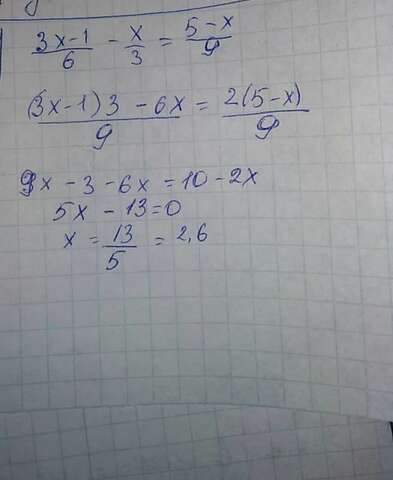 (3x-1)/6 - x/3 = (5-x)/9
((3x-1)3 - 6x)/9 = 2(5-x)/9
9x - 3 - 6x = 10 - 2x
5x - 13 = 0
x = 13/5 = 2,6